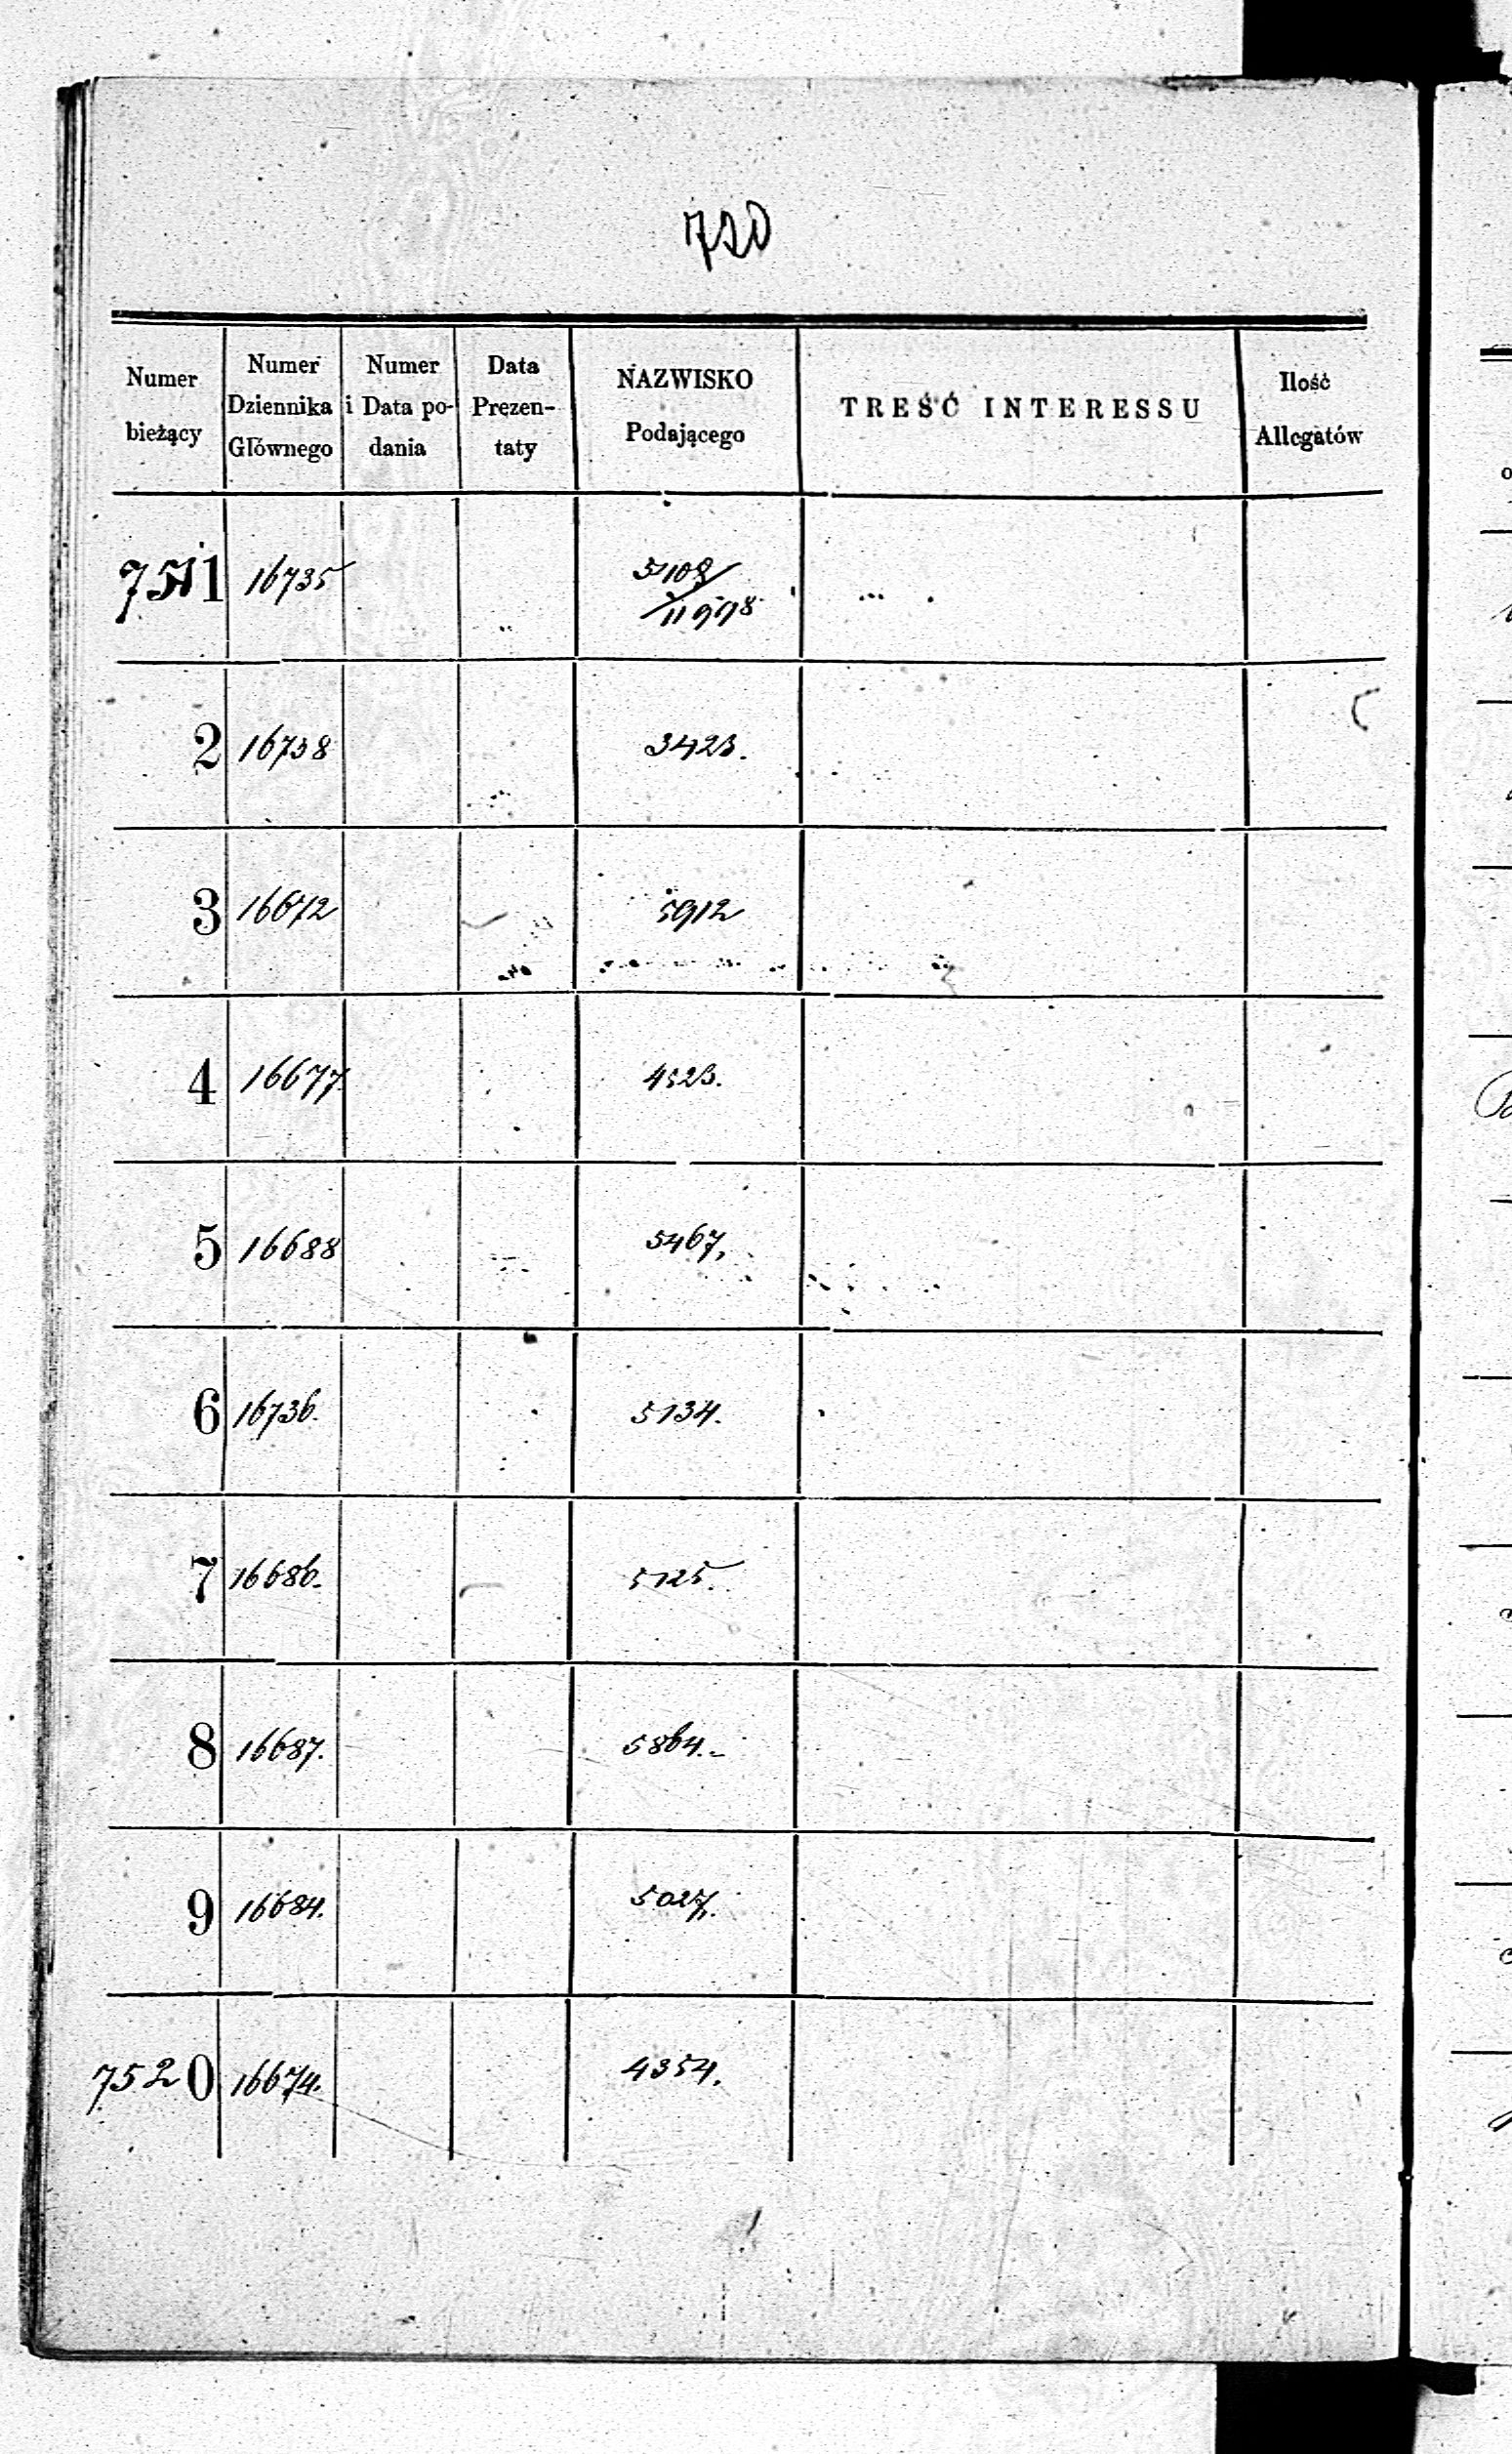 720
Numer bieżący | Numer Dziennika Głównego | Numer i Data podania | Data Prezentaty | NAZWISKO Podającego | TREŚĆ INTERESSU | Ilość Allegatów
7511 16735 5108/11998
2 16738 3423.
3 16672 5912
4 16677. 4523.
5 16688 5467,
6 16736. 5134.
7 16686. 5125.
8 16687. 5864.
9 16684. 5027.
7520 16674. 4354.